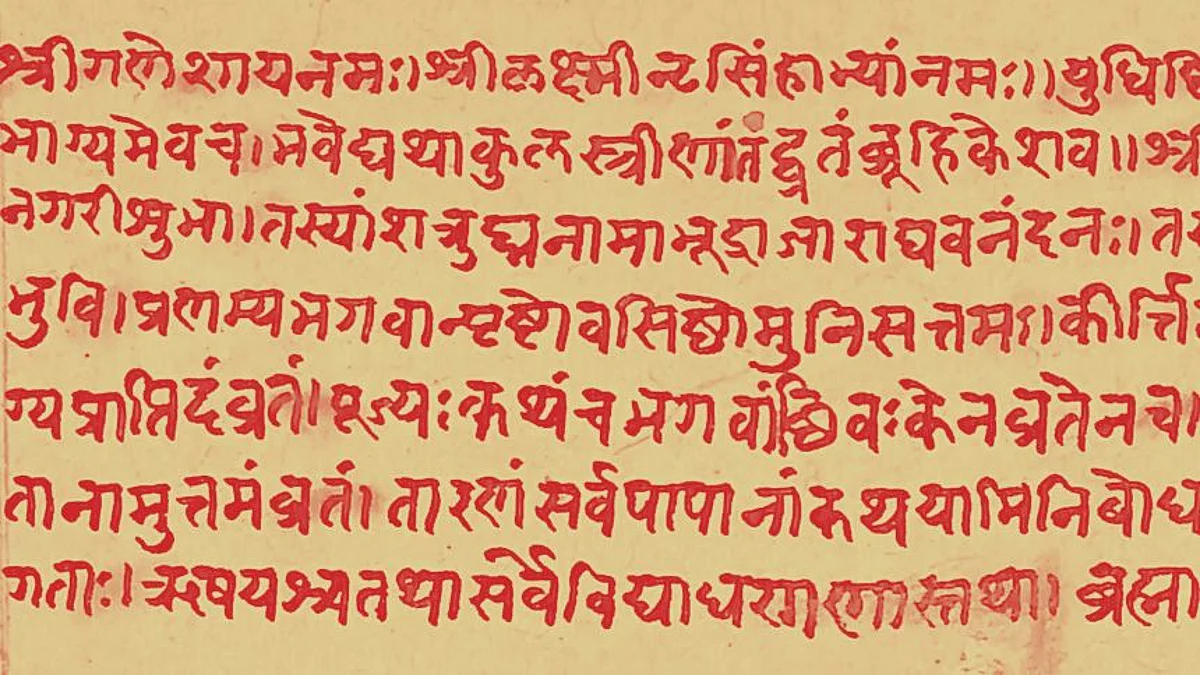 श्रीगणेशायनमः।श्रीलक्ष्मीन्टसिंहाभ्यांनमः।।युधिष्ठि
भाग्यमेवच।भवेद्यथाकुलस्त्रीणांतंद्व्रतंब्रूहिकेशव॥श्री
नगरीशुभा।तस्यांशत्रुघ्ननामाभूद्राजाराघवनंदनः।त
भुवि।प्रणम्यभगवान्पृष्टोवसिष्ठोमुनिसत्तमः।कीर्त्ति
ग्यप्राप्तिदंव्रतं।पूज्यःकथंचभगवांछिवःकेनव्रतेनच
तानामुत्तमंव्रतं।तारणंसर्वपापानांकथयामिनिबोध
गताः।ऋषयश्चतथासर्वेविद्याधरगणास्तथा।ब्रह्मा